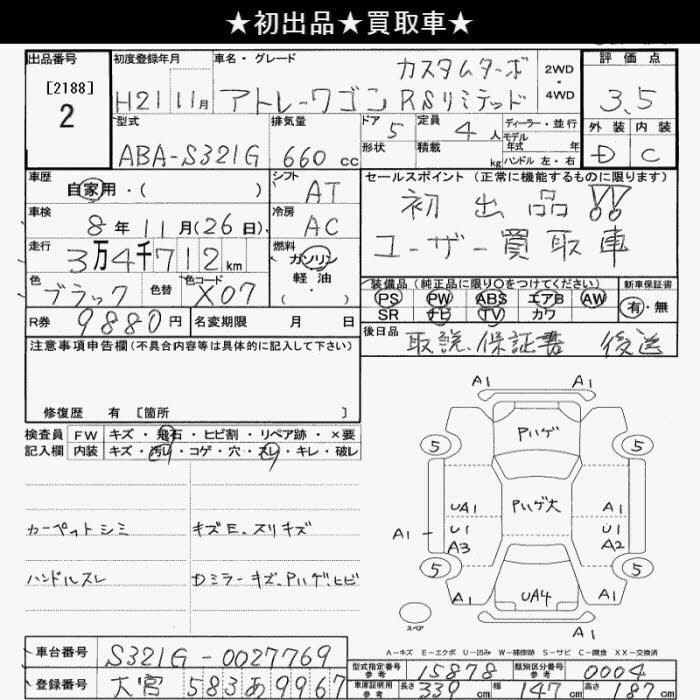 ★初出品★買取車★
出品番号 初度登録年月 車名・グレード 評価点
[2188] 2 H21 11月 アトレーワゴン カスタムターボ RSリミテッド 2WD・4WD 3.5
型式 排気量 ドア 5 定員 4人 ディーラー・並行 外装 内装
ABA-S321G 660cc 形状 積載 kg モデル年式 年 ハンドル 左・右 D C
車歴 自家用・( ) シフト AT セールスポイント (正常に機能するものに限ります)
車検 8年11月(26日) 冷房 AC 初出品!!
走行 3万4千712km 燃料 ガソリン 軽油 (・) ユーザー買取車
色 ブラック 色替 色コード X07 装備品 (純正品に限り○をつけてください) 新車保証書
PS PW ABS エアB AW 有・無
SR ナビ TV カワ
R券 9880円 名変期限 月 日 後日品 取説、保証書 後送
注意事項申告欄(不具合内容等は具体的に記入して下さい)
修復歴 有 [箇所 ]
検査員 FW キズ・飛石・ヒビ割・リペア跡・×要
記入欄 内装 キズ・汚レ・コゲ・穴・スレ・キレ・破レ
カーペットシミ キズE、スリキズ
ハンドルスレ Dミラーキズ、Pハゲ、ヒビ
A1 A1
Pハゲ
5 5
Pハゲ大
UA1 A1
A1 U1 U1
A3 A2
5 5
A1 UA4 A1
スペア
A1
A-キズ E-エクボ U-凹み W-補修跡 S-サビ C-腐食 XX-交換済
車台番号 S321G-0027769
型式指定番号 参考 15878 類別区分番号 参考 0004
登録番号 大宮 583 あ 9967
車庫証明用 参考 長さ 339cm 幅 147cm 高さ 187cm